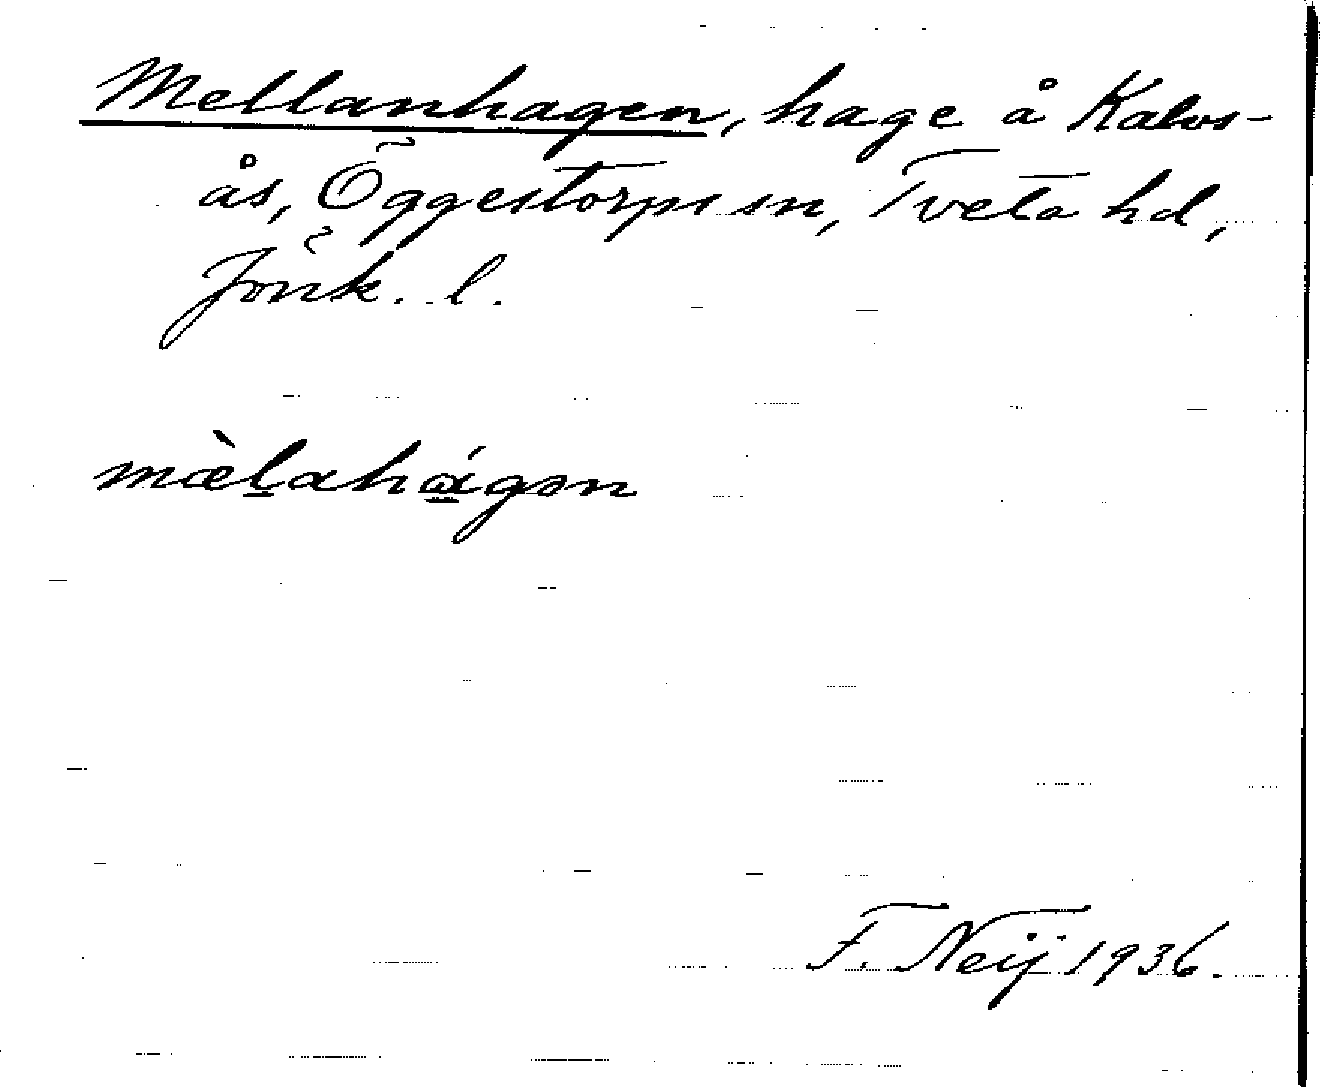 Mellanhagen, hage å Kalvs-
ås, Öggestorps sn, Tveta hd,
Jönk. l.
mæ̀l̠ahά̠gən
F. Neij 1936.